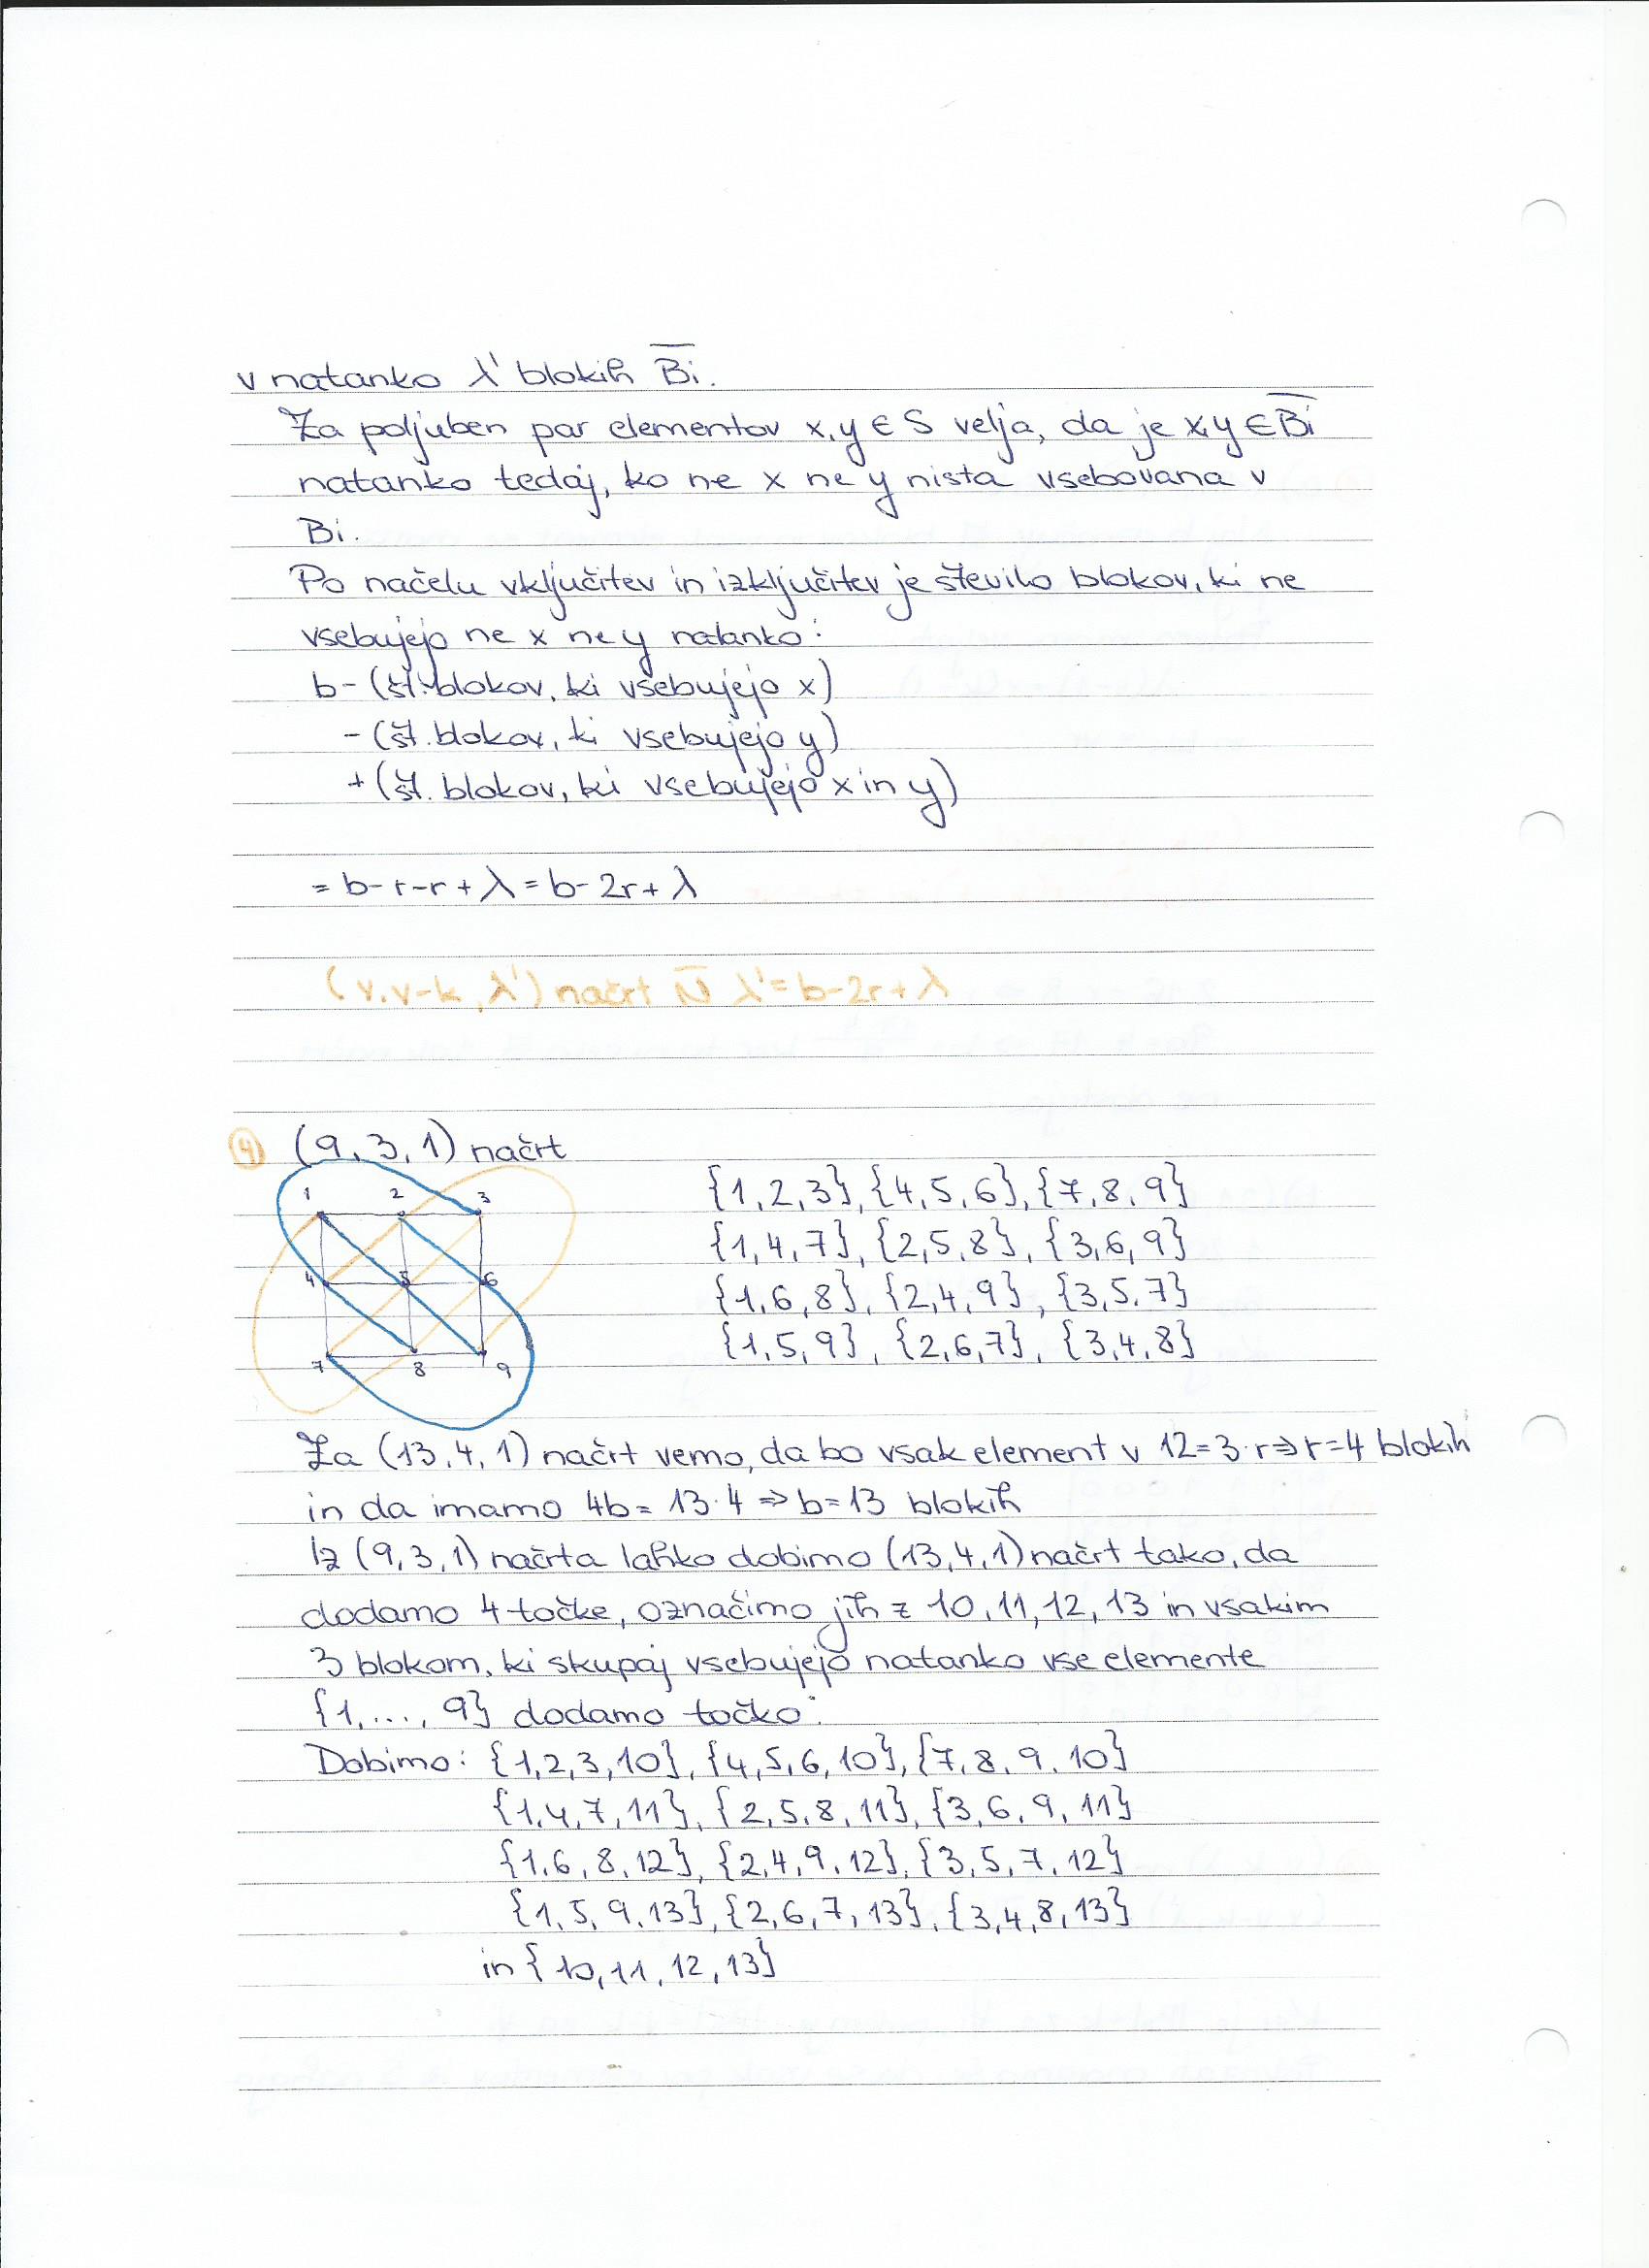 v natanko λ' blokih B̅i.
Za poljuben par elementov x,y ∈ S velja, da je x,y ∈ B̅i
natanko tedaj, ko ne x ne y nista vsebovana v
Bi.
Po načelu vključitev in izključitev je število blokov, ki ne
vsebujejo ne x ne y natanko:
b - (št. blokov, ki vsebujejo x)
- (št. blokov, ki vsebujejo y)
+ (št. blokov, ki vsebujejo x in y)
= b-r-r+λ = b-2r+λ
(v, v-k, λ') načrt N̅ λ'=b-2r+λ
4) (9,3,1) načrt
1 2 3
4 5 6
7 8 9
{1,2,3}, {4,5,6}, {7,8,9}
{1,4,7}, {2,5,8}, {3,6,9}
{1,6,8}, {2,4,9}, {3,5,7}
{1,5,9}, {2,6,7}, {3,4,8}
Za (13,4,1) načrt vemo, da bo vsak element v 12=3·r⇒r=4 blokih
in da imamo 4b = 13·4 ⇒ b=13 blokih
Iz (9,3,1) načrta lahko dobimo (13,4,1) načrt tako, da
dodamo 4 točke, označimo jih z 10,11,12,13 in vsakim
3 blokom, ki skupaj vsebujejo natanko vse elemente
{1,...,9} dodamo točko:
Dobimo: {1,2,3,10}, {4,5,6,10}, {7,8,9,10}
{1,4,7,11}, {2,5,8,11}, {3,6,9,11}
{1,6,8,12}, {2,4,9,12}, {3,5,7,12}
{1,5,9,13}, {2,6,7,13}, {3,4,8,13}
in {10,11,12,13}